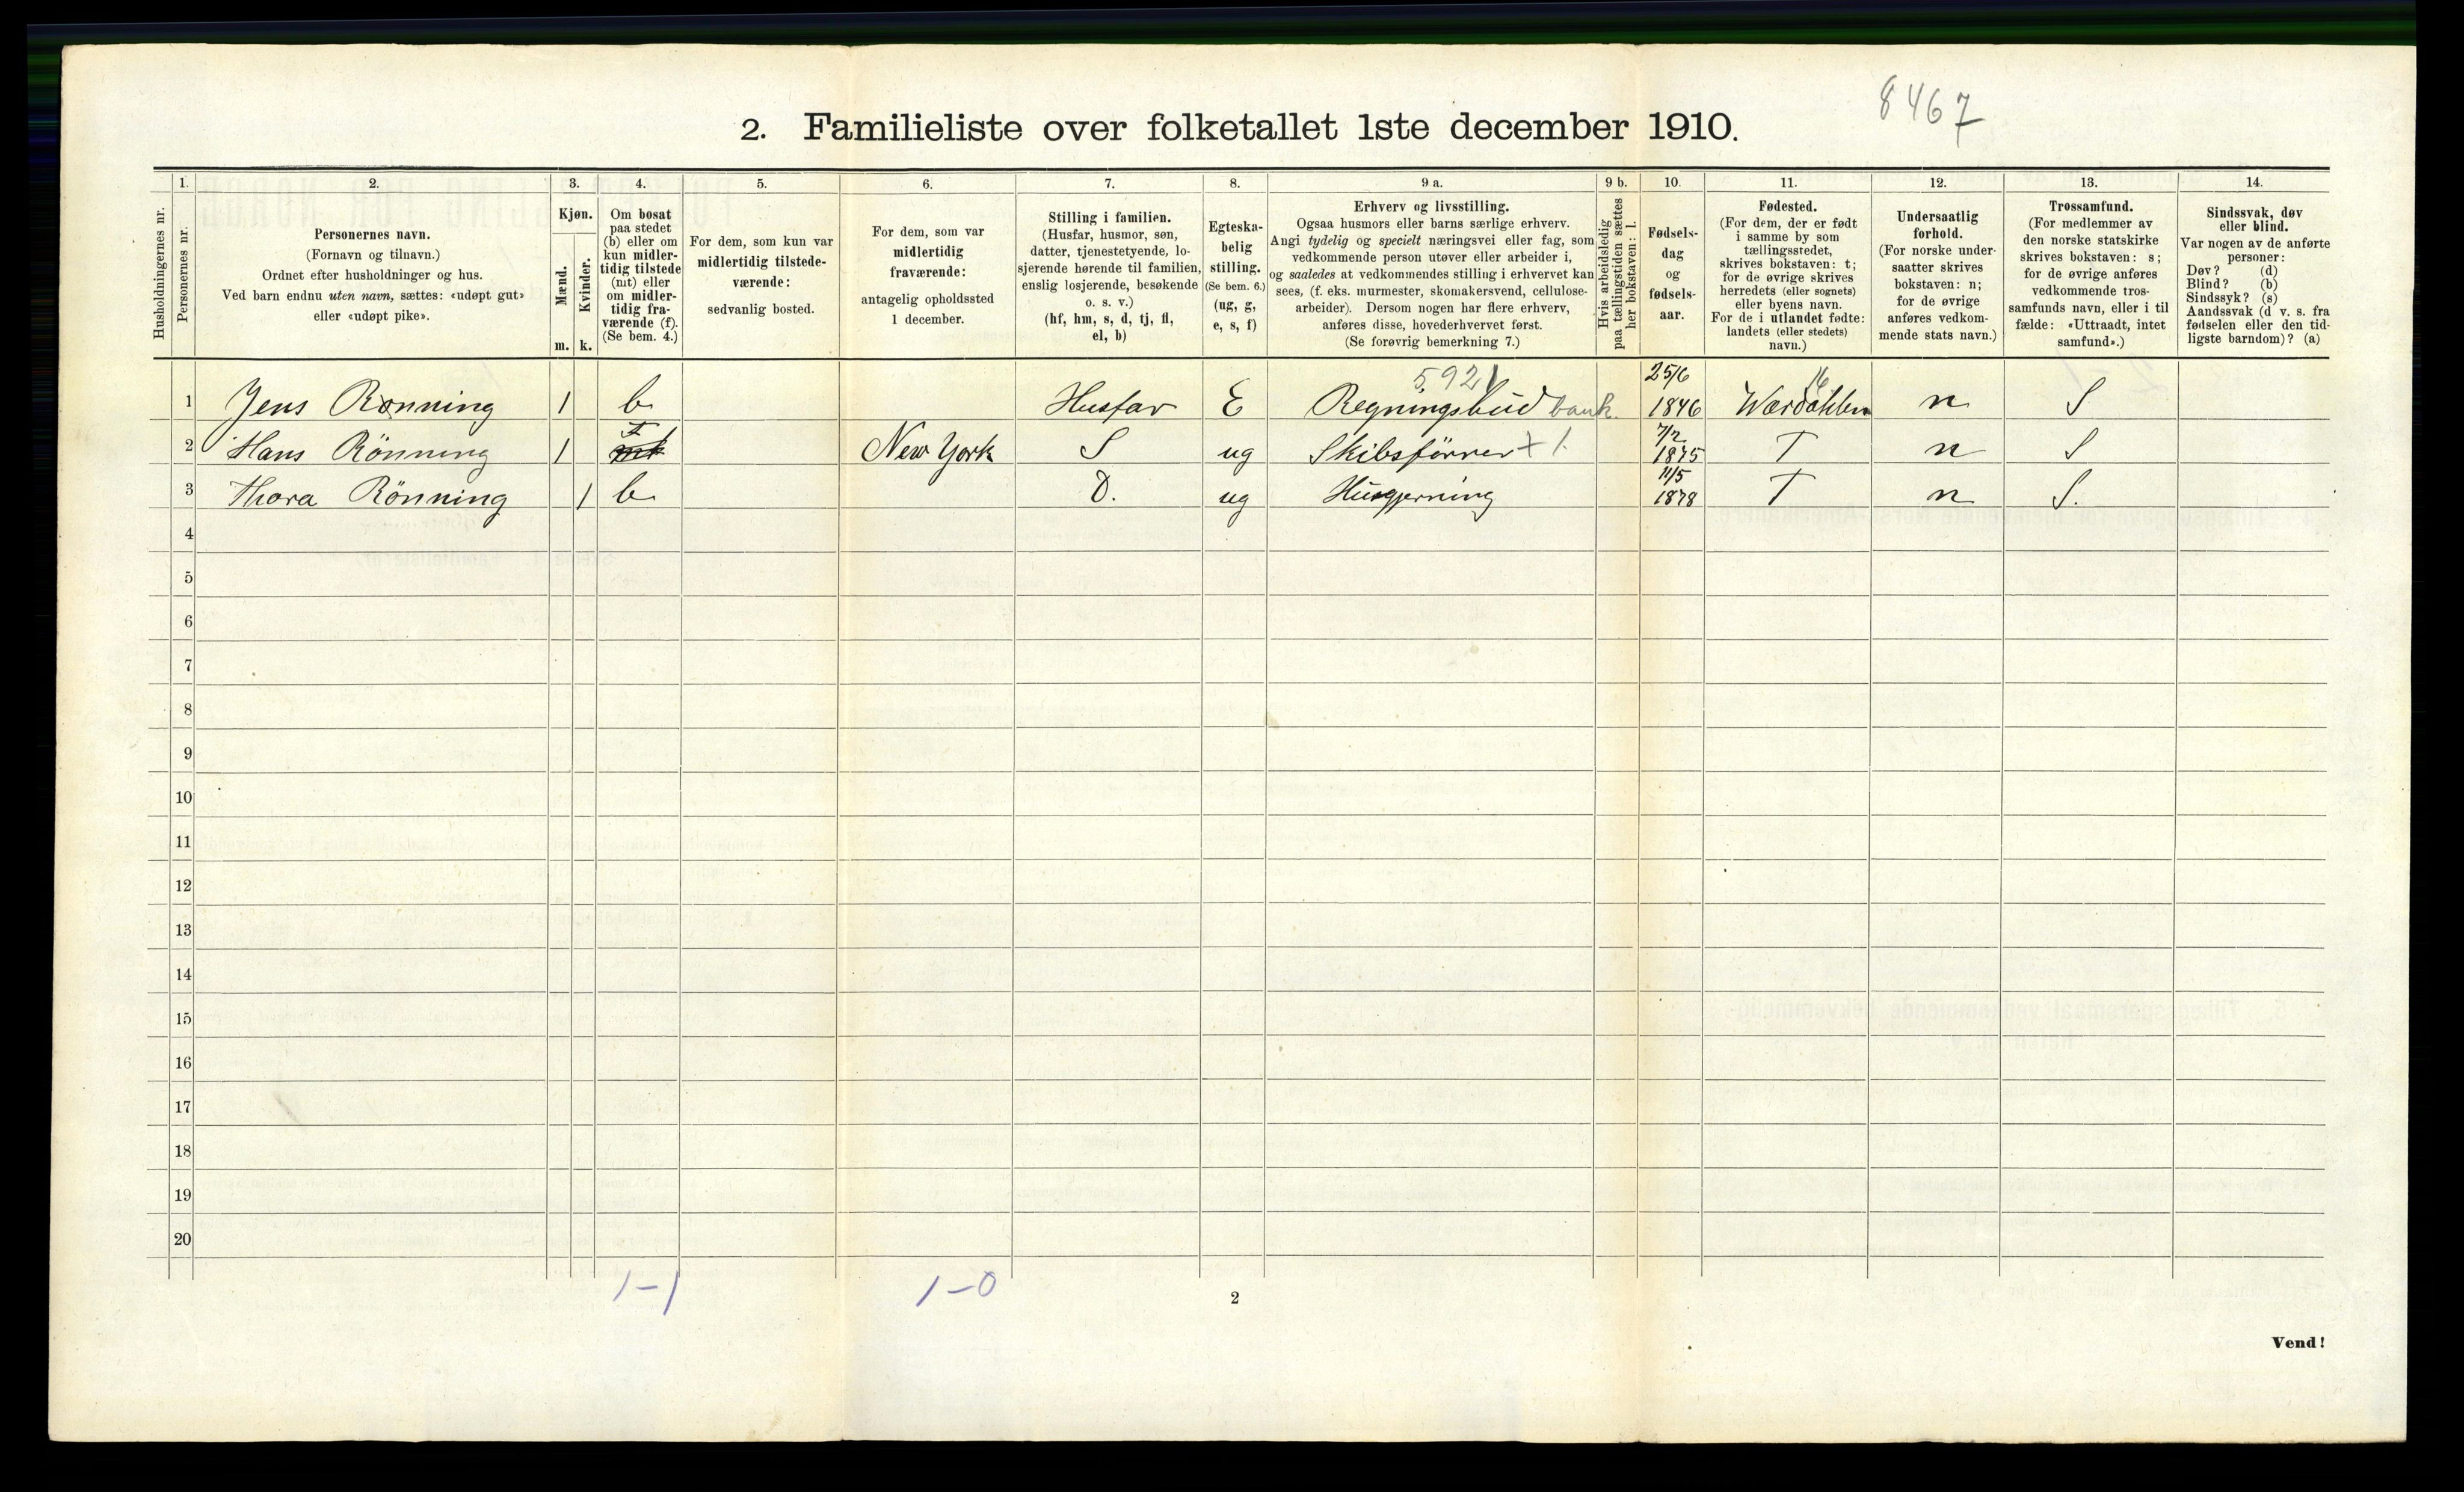 8467
2. Familieliste over folketallet 1ste december 1910.
1. 2. 3. 4. 5. 6. 7. 8. 9 a. 9 b. 10. 11. 12. 13. 14.
Husholdningernes nr.
Personernes nr.
Personernes navn.
(Fornavn og tilnavn.)
Ordnet efter husholdninger og hus.
Ved barn endnu uten navn, sættes: «udøpt gut»
eller «udøpt pike».
Kjøn.
Mænd.
Kvinder.
m. k.
Om bosat
paa stedet
(b) eller om
kun midler-
tidig tilstede
(mt) eller
om midler-
tidig fra-
værende (f).
(Se bem. 4.)
For dem, som kun var
midlertidig tilstede-
værende:
sedvanlig bosted.
For dem, som var
midlertidig
fraværende:
antagelig opholdssted
1 december.
Stilling i familien.
(Husfar, husmor, søn,
datter, tjenestetyende, lo-
sjerende hørende til familien,
enslig losjerende, besøkende
o. s. v.)
(hf, hm, s, d, tj, fl,
el, b)
Egteska-
belig
stilling.
(Se bem. 6.)
(ug, g,
e, s, f)
Erhverv og livsstilling.
Ogsaa husmors eller barns særlige erhverv.
Angi tydelig og specielt næringsvei eller fag, som
vedkommende person utøver eller arbeider i,
og saaledes at vedkommendes stilling i erhvervet kan
sees, (f. eks. murmester, skomakersvend, cellulose-
arbeider). Dersom nogen har flere erhverv,
anføres disse, hovederhvervet først.
(Se forøvrig bemerkning 7.)
Hvis arbeidsledig
paa tællingstiden sættes
her bokstaven: l.
Fødsels-
dag
og
fødsels-
aar.
Fødested.
(For dem, der er født
i samme by som
tællingsstedet,
skrives bokstaven: t;
for de øvrige skrives
herredets (eller sognets)
eller byens navn.
For de i utlandet fødte:
landets (eller stedets)
navn.)
Undersaatlig
forhold.
(For norske under-
saatter skrives
bokstaven: n;
for de øvrige
anføres vedkom-
mende stats navn.)
Trossamfund.
(For medlemmer av
den norske statskirke
skrives bokstaven: s;
for de øvrige anføres
vedkommende tros-
samfunds navn, eller i til
fælde: «Uttraadt, intet
samfund».)
Sindssvak, døv
eller blind.
Var nogen av de anførte
personer:
Døv? (d)
Blind? (b)
Sindssyk? (s)
Aandssvak (d v. s. fra
fødselen eller den tid-
ligste barndom)? (a)
5921 25/6 16
1 Jens Rønning 1 b Husfar E Regningsbud bank. 1846 Wærdahlen n S
f 7/2
2 Hans Rönning 1 mt New York S ug Skibsförrer + 1. 1875 T n S
11/5
3 Thora Rönning 1 b D. ug Husgjerning 1878 T n S.
4
5
6
7
8
9
10
11
12
13
14
15
16
17
18
19
20
1-1 1-0
2
Vend!